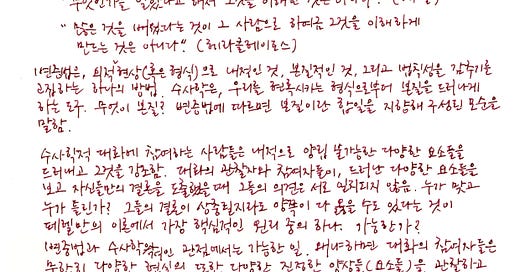 "많은 것을 배웠다는 것이 그 사람으로 하여금 그것을 이해하게
만드는 것은 아니다." (헤라클레이토스)
변증법은, 외적 현상(혹은 형식)으로 내적인 것, 본질적인 것, 그리고 법칙성을 감추기를
고집하는 하나의 방법. 수사학은, 우리를 현혹시키는 형식으로부터 본질을 드러나게
하는 도구. 무엇이 본질? 변증법에 따르면 본질이란 합일을 지향해 구성된 모순을
말함.
수사학적 대화에 참여하는 사람들은 내적으로 양립 불가능한 다양한 요소들을
드러내고 그것을 강조함. 대화의 관찰자와 참여자들이, 드러난 다양한 요소들을
보고 자신들만의 결론을 도출했을 때 그들의 의견은 서로 일치되지 않음. 누가 맞고
누가 틀린가? 그들의 결론이 상충될지라도 양쪽이 다 옳을 수도 있다는 것이
헤겔만의 이론에서 가장 핵심적인 원리 중의 하나. 가능한가?
변증법과 수사학적인 관점에서는 가능한 일. 왜냐하면 대화의 참여자들은
다양한 형식의 또한 다양한 진정한 양상들(요소들)을 관찰하고